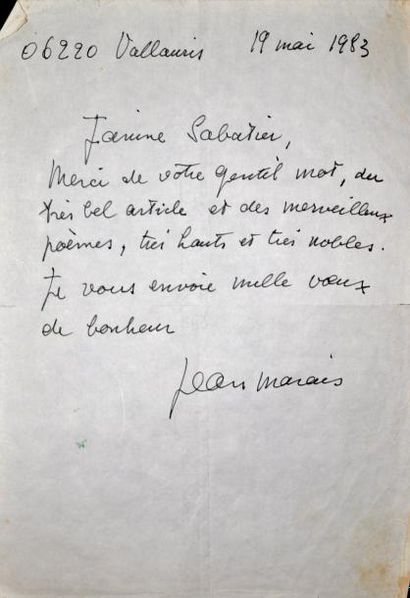 06220 Vallauris 19 mai 1983
Janine Sabatier,
Merci de votre gentil mot, du
très bel article et des merveilleux
poèmes, très hauts et très nobles.
Je vous envoie mille vœux
de bonheur
Jean Marais